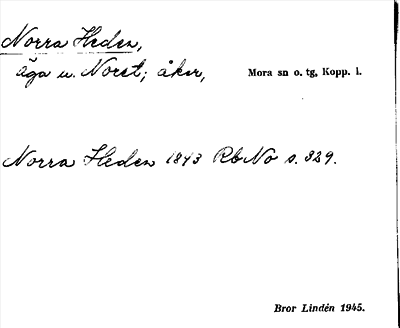 Norra Heden,
äga u. Noret; åker, Mora sn o. tg, Kopp. l.
Norra Heden 1843 Rb No s. 329.
Bror Lindén 1945.